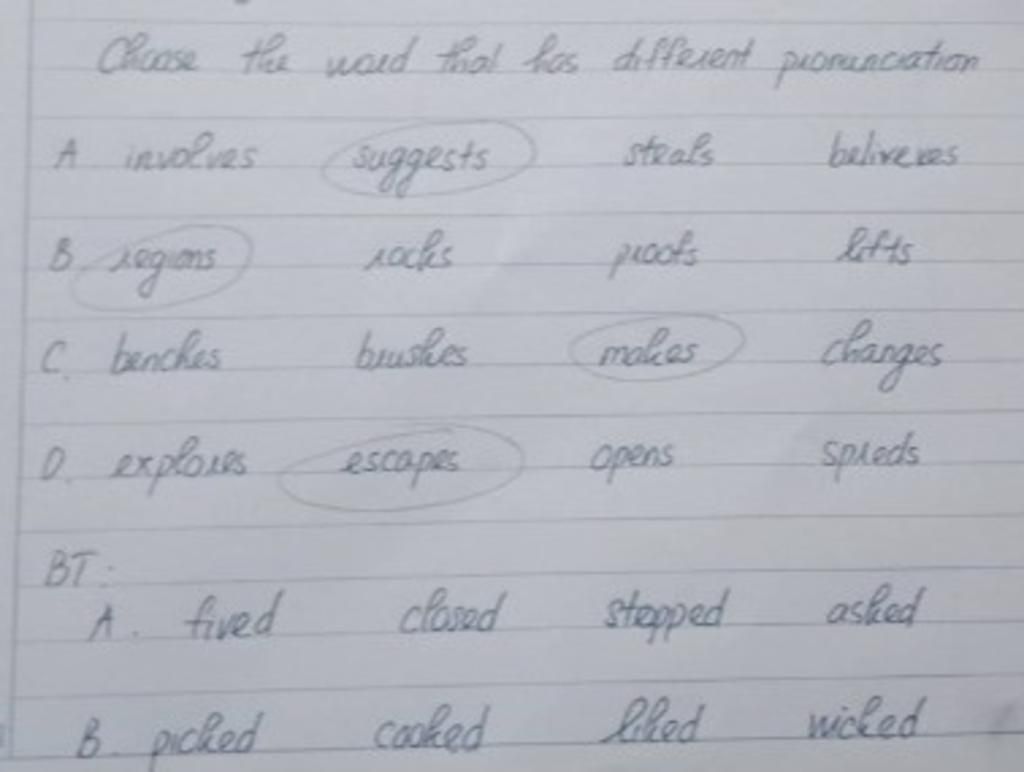 Choose the word that has different pronunciation
A involves suggests steals beliveves
B. regions rocks proofs lifts
C. benches brushes makes changes
D. explores escapes opens
BT:
A. fived closed stopped asked
B. picked cooked liked wicked